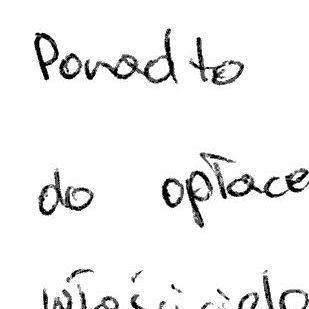 Ponadto
do opłace
właściciela